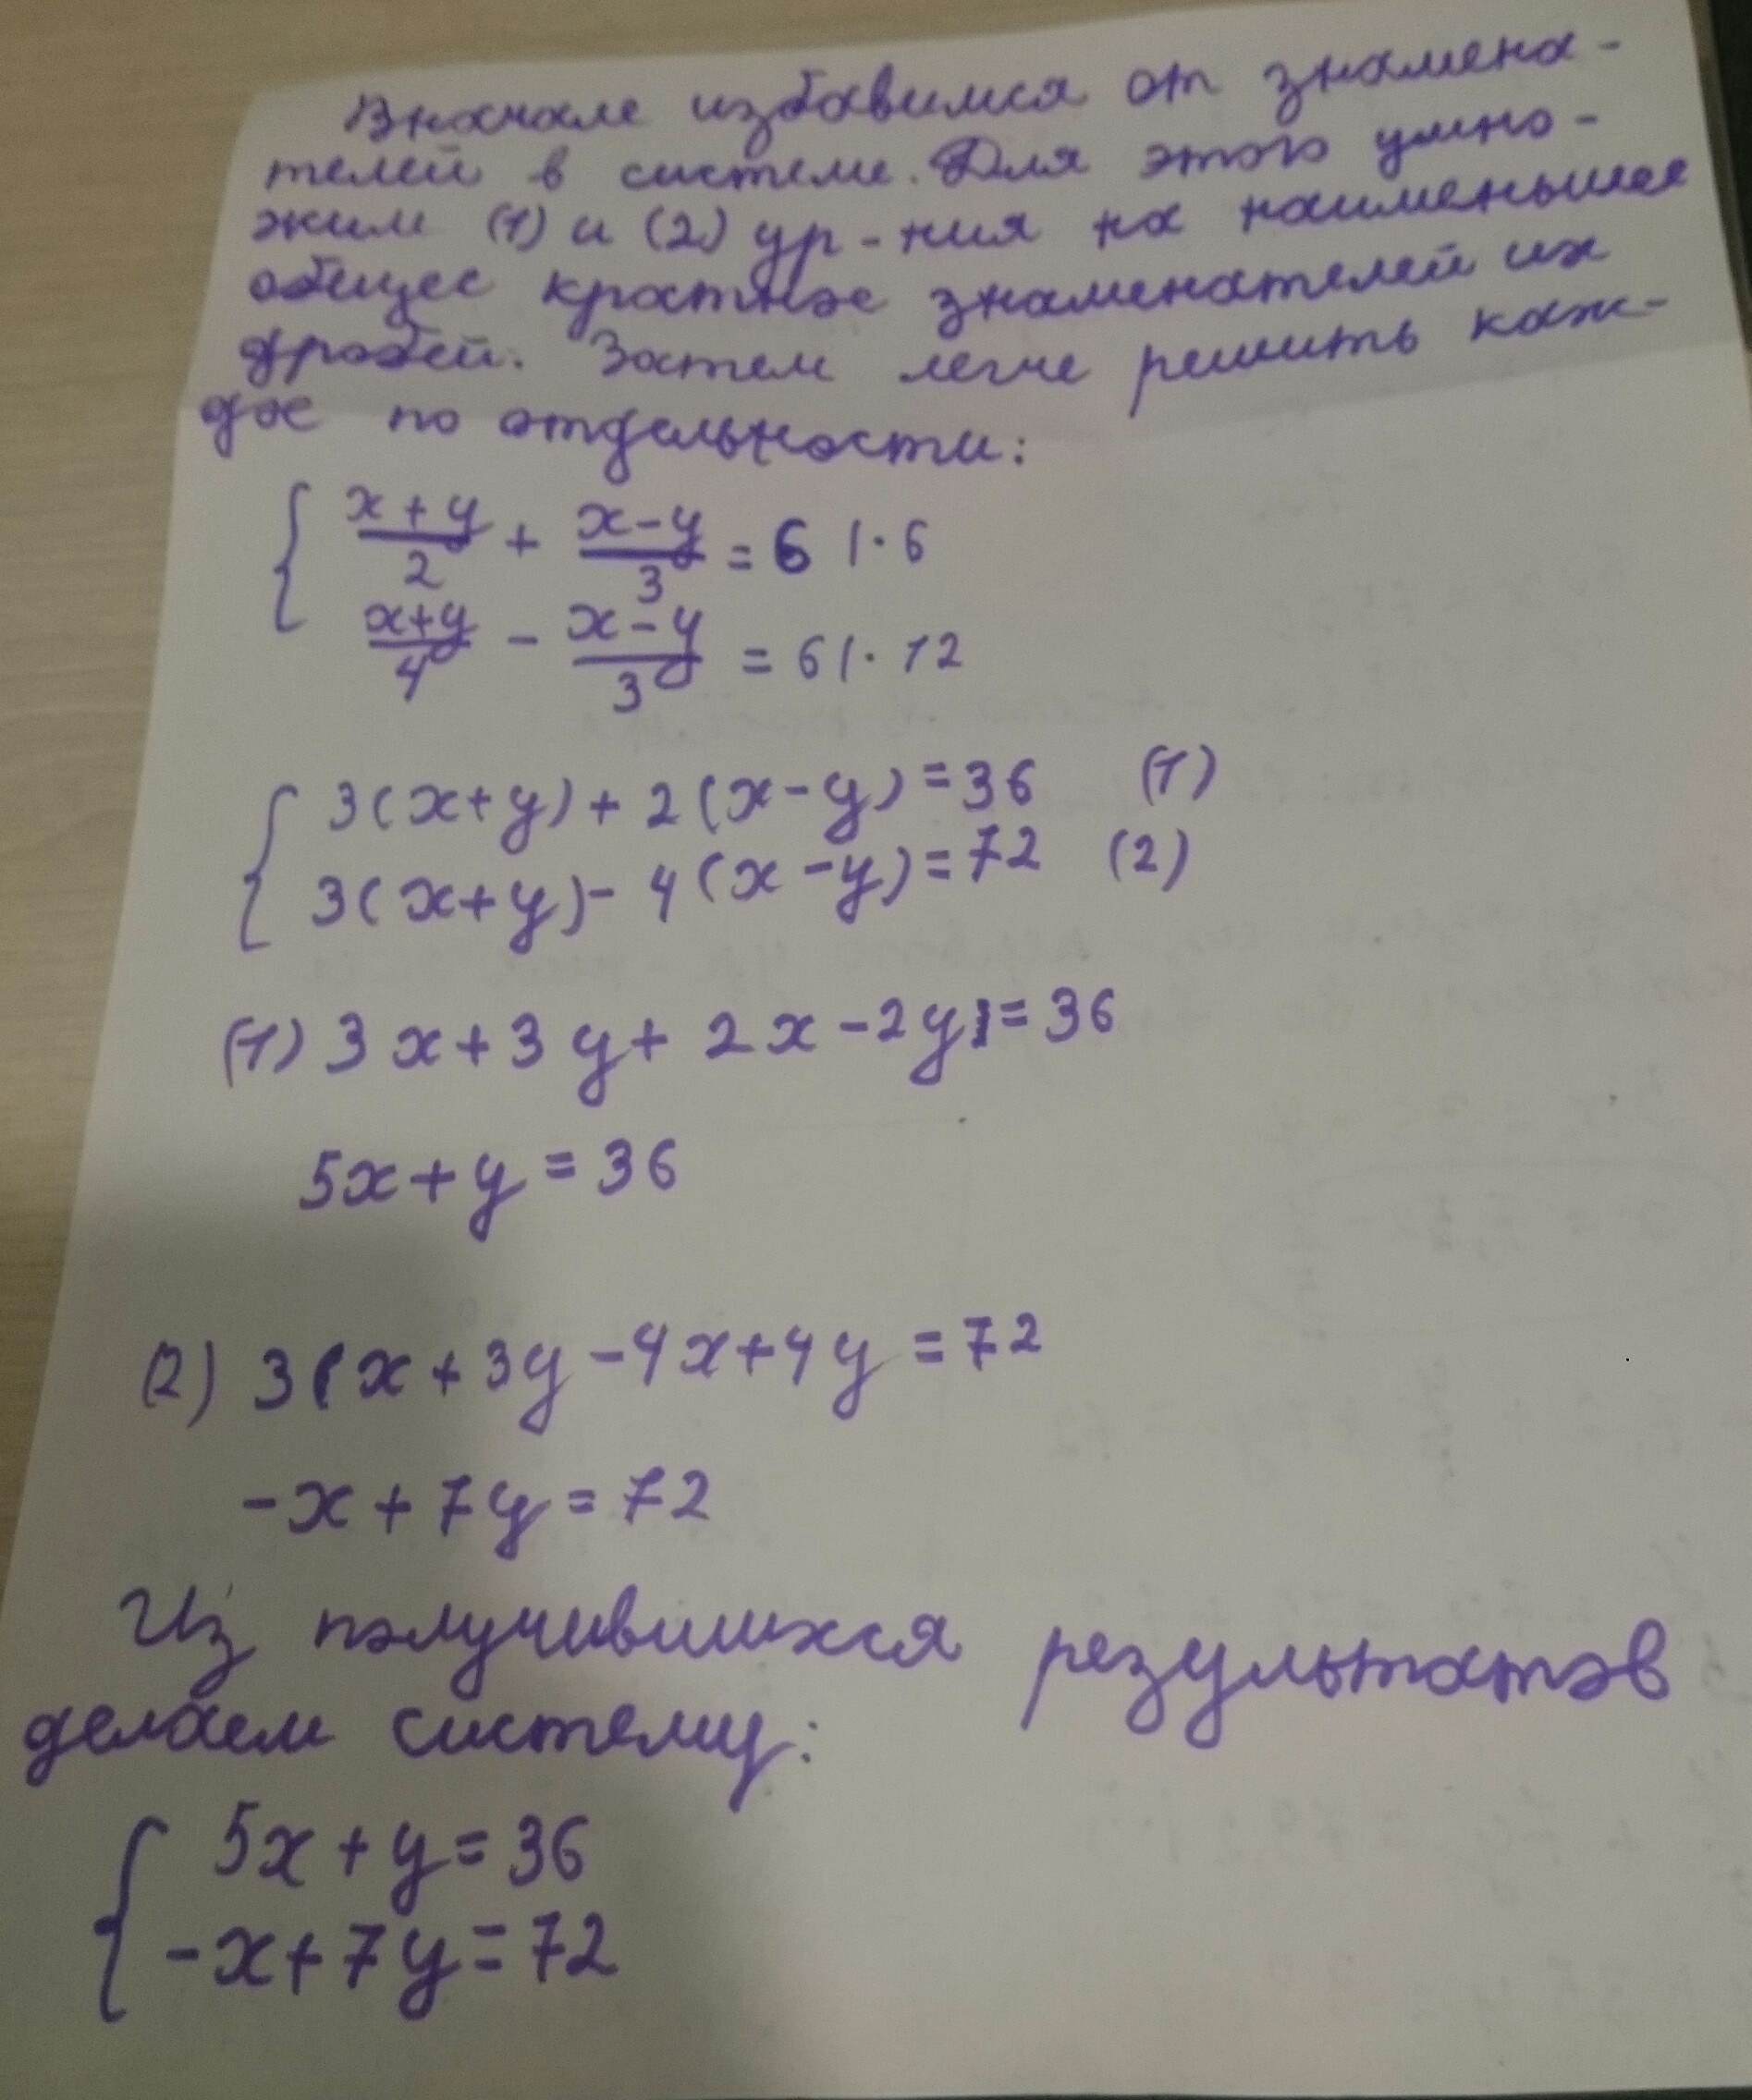 Вначале избавимся от знамена-
телей в системе. Для этого умно-
жим (1) и (2) ур-ния на наименьшее
общее кратное знаменателей их
дробей. Затем легче решить каж-
дое по отдельности:
{ (x+y)/2 + (x-y)/3 = 6 | · 6
(x+y)/4 - (x-y)/3 = 6 | · 12
{ 3(x+y)+2(x-y)=36 (1)
3(x+y)-4(x-y)=72 (2)
(1) 3x+3y+2x-2y=36
5x+y=36
(2) 3x+3y-4x+4y=72
-x+7y=72
Из получившихся результатов
делаем систему:
{ 5x+y=36
-x+7y=72